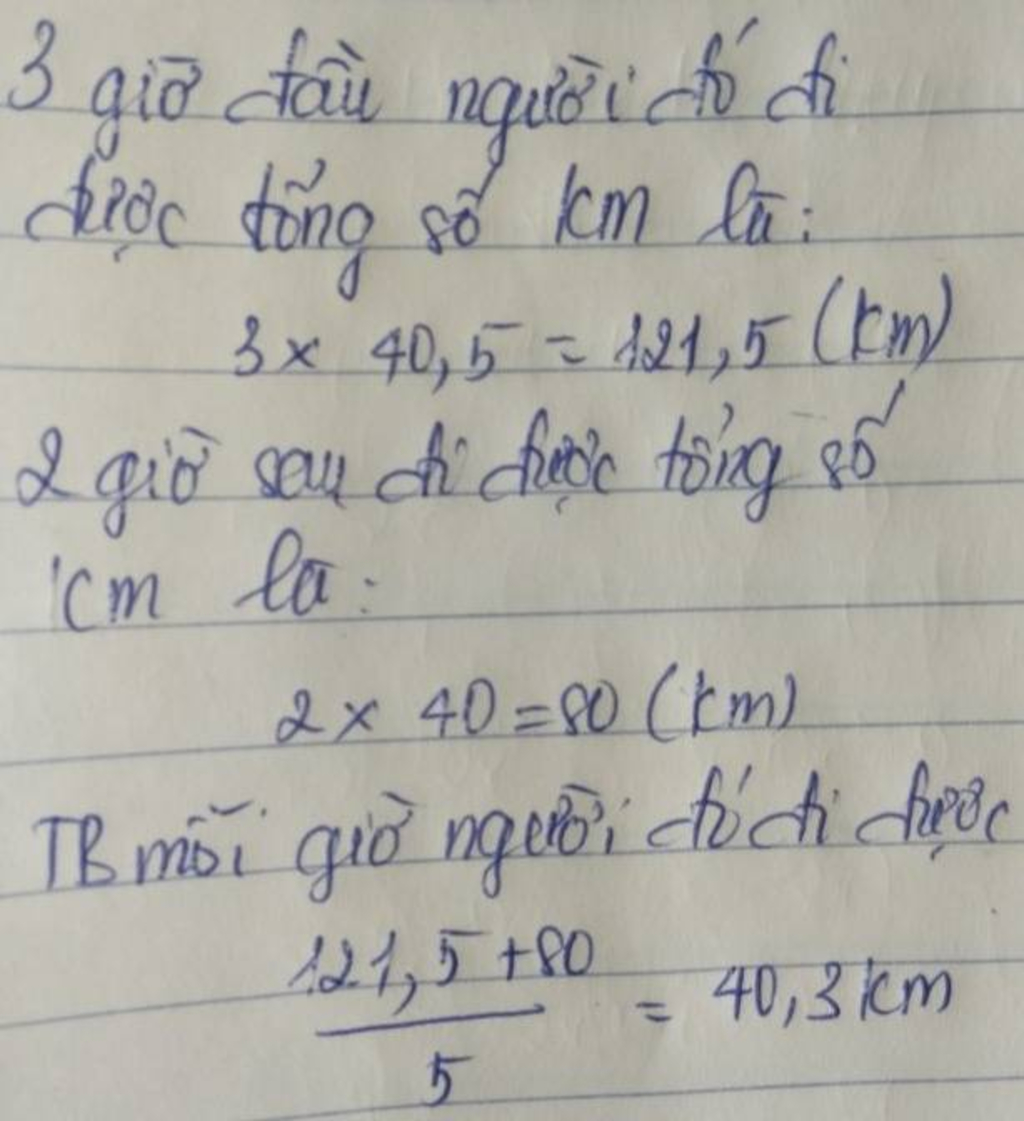 3 giờ đầu người đó đi
được tổng số km là:
3 x 40,5 = 121,5 (km)
2 giờ sau đi được tổng số
km là:
2 x 40 = 80 (km)
TB mỗi giờ người đó đi được
121,5 + 80
= 40,3 km
5